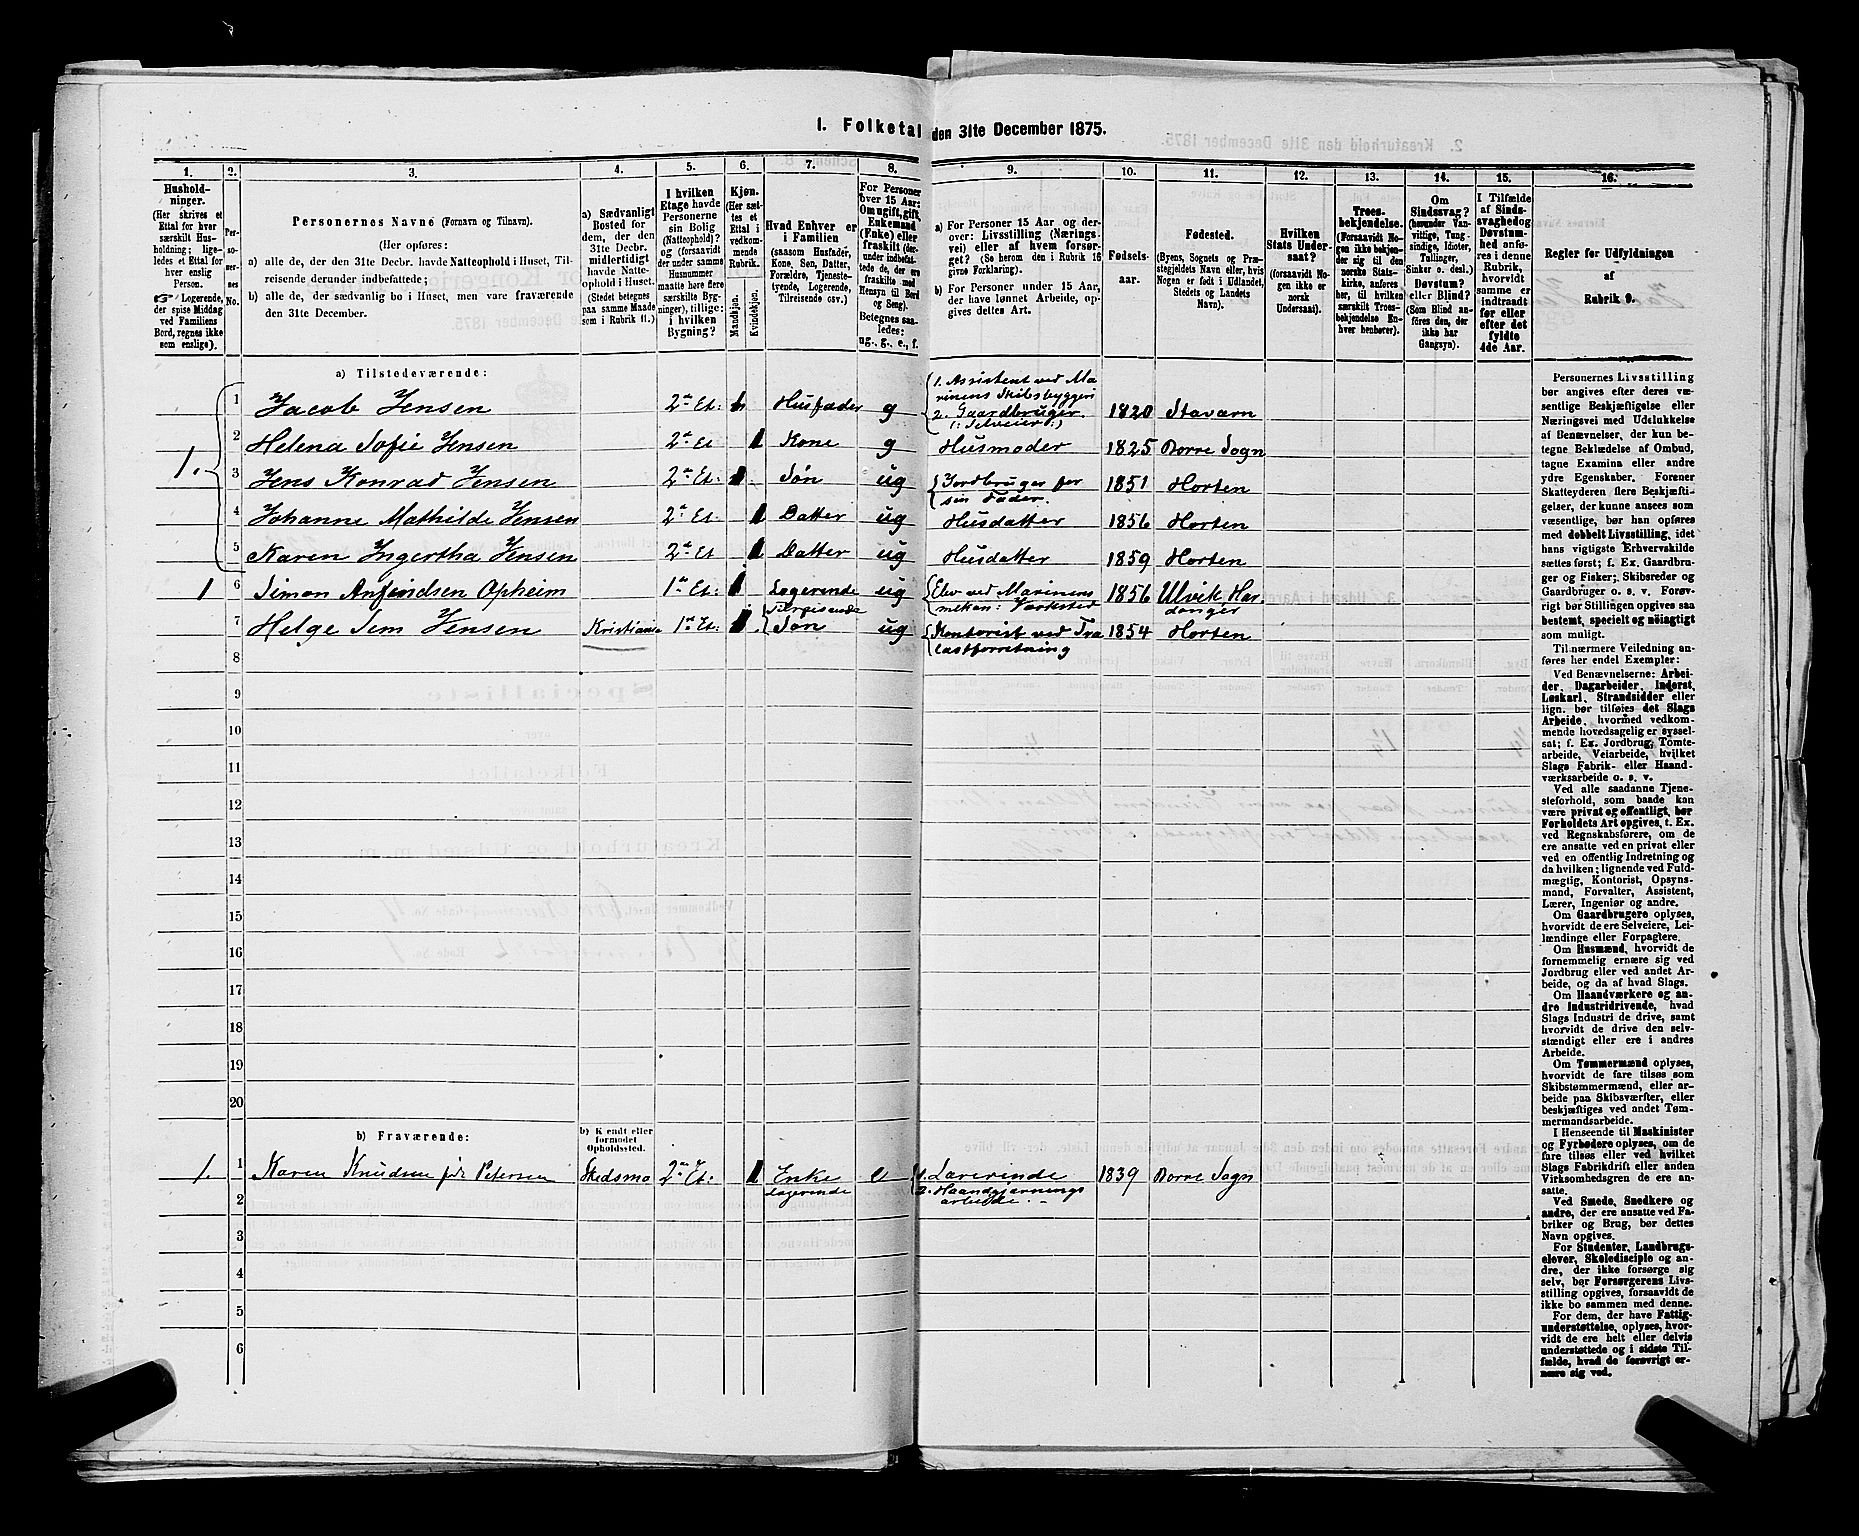 1. Folketal den 31te December 1875.
1. 2. 3. 4. 5. 6. 7. 8. 9. 10. 11. 12. 13. 14. 15. 16.
Hushold-
ninger.
(Her skrives et
Ettal for hver
særskilt Hus-
holdning; lige-
ledes et Ettal for
hver enslig
Person.
☞ Logerende,
der spise Middag
ved Familiens
Bord, regnes ikke
som enslige).
Per-
so-
ner-
nes
No.
Personernes Navne (Fornavn og Tilnavn).
(Her opføres:
a) alle de, der den 31te Decbr. havde Natteophold i Huset, Til-
reisende derunder indbefattede;
b) alle de, der sædvanlig bo i Huset, men vare fraværende
den 31te December.
a) Sædvanligt
Bosted for
dem, der den
31te Decbr.
midlertidigt
havde Natte-
ophold i Huset.
(Stedet betegnes
paa samme Maade
som i Rubrik 11.)
I hvilken
Etage havde
Personerne
sin Bolig
(Natteophold)?
og (forsaavidt
der under samme
Husnummer
maatte høre flere
særskilte Byg-
ninger), tillige:
i hvilken
Bygning?
Kjøn.
(Her sæt-
tes et
Ettal i
vedkom-
mende
Rubrik.
Mandkjøn.
Kvindekjøn.
Hvad Enhver er
i Familien
(saasom Husfader,
Kone, Søn, Datter,
Forældre, Tjeneste-
tyende, Logerende,
Tilreisende csv.)
For Personer
over 15 Aar:
Om ugift, gift,
Enkemand
(Enke) eller
fraskilt (der-
under indbefat-
tede de, der ere
fraskilte med
Hensyn til Bord
og Seng).
Betegnes saa-
ledes:
ug., g., e., f.
a) For Personer 15 Aar og der-
over: Livsstilling (Nærings-
vei) eller af hvem forsør-
get? (Se herom den i Rubrik 16
givne Forklaring).
b) For Personer under 15 Aar,
der have lønnet Arbeide, op-
gives dettes Art.
Fødsels-
aar.
Fødested.
(Byens, Sognets og Præ-
stegjeldets Navn eller, hvis
Nogen er født i Udlandet,
Stedets og Landets
Navn).
Hvilken
Stats Under-
saat?
(forsaavidt No-
gen ikke er
norsk
Undersaat).
Troes-
bekjendelse.
(Forsaavidt No-
gen ikke bekjen-
der sig til den
norske Stats-
kirke, anføres
her, til hvilken
særskilt Troes-
bekjendelse En-
hver henhører).
Om
Sindssvag?
(herunder Van-
vittige, Tung-
sindige, Idioter,
Tullinger,
Sinker o. desl.)
Døvstum?
eller Blind?
(Som Blind an-
føres den, der
ikke har
Gangsyn).
I Tilfælde
af Sinds-
svaghed og
Døvstum-
hed anfø-
res i denne
Rubrik,
hvorvidt
samme er
indtraadt
før eller
efter det
fyldte
4de Aar.
Regler for Udfyldningen
af
Rubrik 9.
a) Tilstedeværende:
1. 1 Jacob Jensen 2den Et: 1 Husfader g 1. Assistent ved Ma-
rinens Skibsbyggeri
2. Gaardbruger
(: Selveier :) 1820 Staværn
2 Helena Sofie Jensen 2den Et 1 Kone g Husmoder 1825 Borre Sogn
3 Jens Konrad Jensen 2den Et: 1 Søn ug Jordbruger for
sin Fader. 1851 Horten
4 Johanne Mathilde Jensen 2den Et 1 Datter ug Husdatter 1856 Horten
5 Karen Ingertha Jensen 2den Et 1 Datter ug Husdatter 1859 Horten
1 6 Simon Anfindsen Opheim 1ste Et: 1 Logerende ug Elev ved Marinens
mekan: Værksted 1856 Ulvik Har-
danger
7 Helge Sem Jensen Kristiania 1ste Et: 1 Tilreisende
Søn ug Kontorist ved Tra
lastforretning 1854 Horten
8
9
10
11
12
13
14
15
16
17
18
19
20
b) Fraværende:
b) Kjendt eller
formodet
Opholdssted.
1. 1 Karen Knudsen født Petersen Skedsmo 2den Et: 1 Enke
Logerende e 1. Lærerinde
2. Haandgjærnings
arbeide. 1839 Borre Sogn
2
3
4
5
6
Personernes Livsstilling
bør angives efter deres væ-
sentlige Beskjæftigelse eller
Næringsvei med Udelukkelse
af Benævnelser, der kun be-
tegne Beklædelse af Ombud,
tagne Examina eller andre
ydre Egenskaber. Forener
Skatteyderen flere Beskjæfti-
gelser, der kunne ansees som
væsentlige, bør han opføres
med dobbelt Livsstilling, idet
hans vigtigste Erhvervskilde
sættes først; f. Ex. Gaardbru-
ger og Fisker; Skibsreder og
Gaardbruger o. s. v. Forøv-
rigt bør Stillingen opgives saa
bestemt, specielt og nøiagtigt
som muligt.
Til nærmere Veiledning an-
føres her endel Exempler:
Ved Benævnelserne: Arbei-
der, Dagarbeider, Inderst,
Løskarl, Strandsidder eller
lign. bør tilføies det Slags
Arbeide, hvormed vedkom-
mende hovedsagelig er syssel-
sat; f. Ex. Jordbrug, Tomte-
arbeide, Veiarbeide, hvilket
Slags Fabrik- eller Haand-
værksarbeide o. s. v.
Ved alle saadanne Tjene-
steforhold, som baade kan
være privat og offentligt, bør
Forholdets Art opgives, t. Ex.
ved Regnskabsførere, om de
ere ansatte ved en privat eller
ved en offentlig Indretning og
da hvilken; lignende ved Fuld-
mægtig, Kontorist, Opsyns-
mand, Forvalter, Assistent,
Lærer, Ingeniør og andre.
Om Gaardbrugere oplyses,
hvorvidt de ere Selveiere, Lei-
lændinge eller Forpagtere.
Om Husmænd, hvorvidt de
fornemmelig ernære sig ved
Jordbrug eller ved andet Ar-
beide, og da af hvad Slags.
Om Haandværkere og an-
dre Industridrivende, hvad
Slags Industri de drive, samt
hvorvidt de drive den selv-
stændigt eller ere i andres
Arbeide.
Om Tømmermænd oplyses,
hvorvidt de fare tilsøs som
Skibstømmermænd, eller ar-
beide paa Skibsværfter, eller
beskjæftiges ved andet Tøm-
mermandsarbeide.
I Henseende til Maskinister
og Fyrbødere oplyses, om de
fare tilsøs eller ved hvilket
Slags Fabrikdrift eller anden
Virksomhedsgren de ere an-
satte.
Ved Smede, Snedkere og
andre, der ere ansatte ved Fa-
briker og Brug, bør dettes
Navn opgives.
For Studenter, Landbrugs-
elever, Skoledisciple og an-
dre, der ikke forsørge sig
selv, bør Forsørgerens Livs-
stilling opgives, forsaavidt de
ikke bo sammen med denne.
For dem, der have Fattig-
understøttelse, oplyses, hvor-
vidt de ere helt eller delvis
understøttede og i sidste Til-
fælde, hvad de forøvrigt er-
nære sig ved.